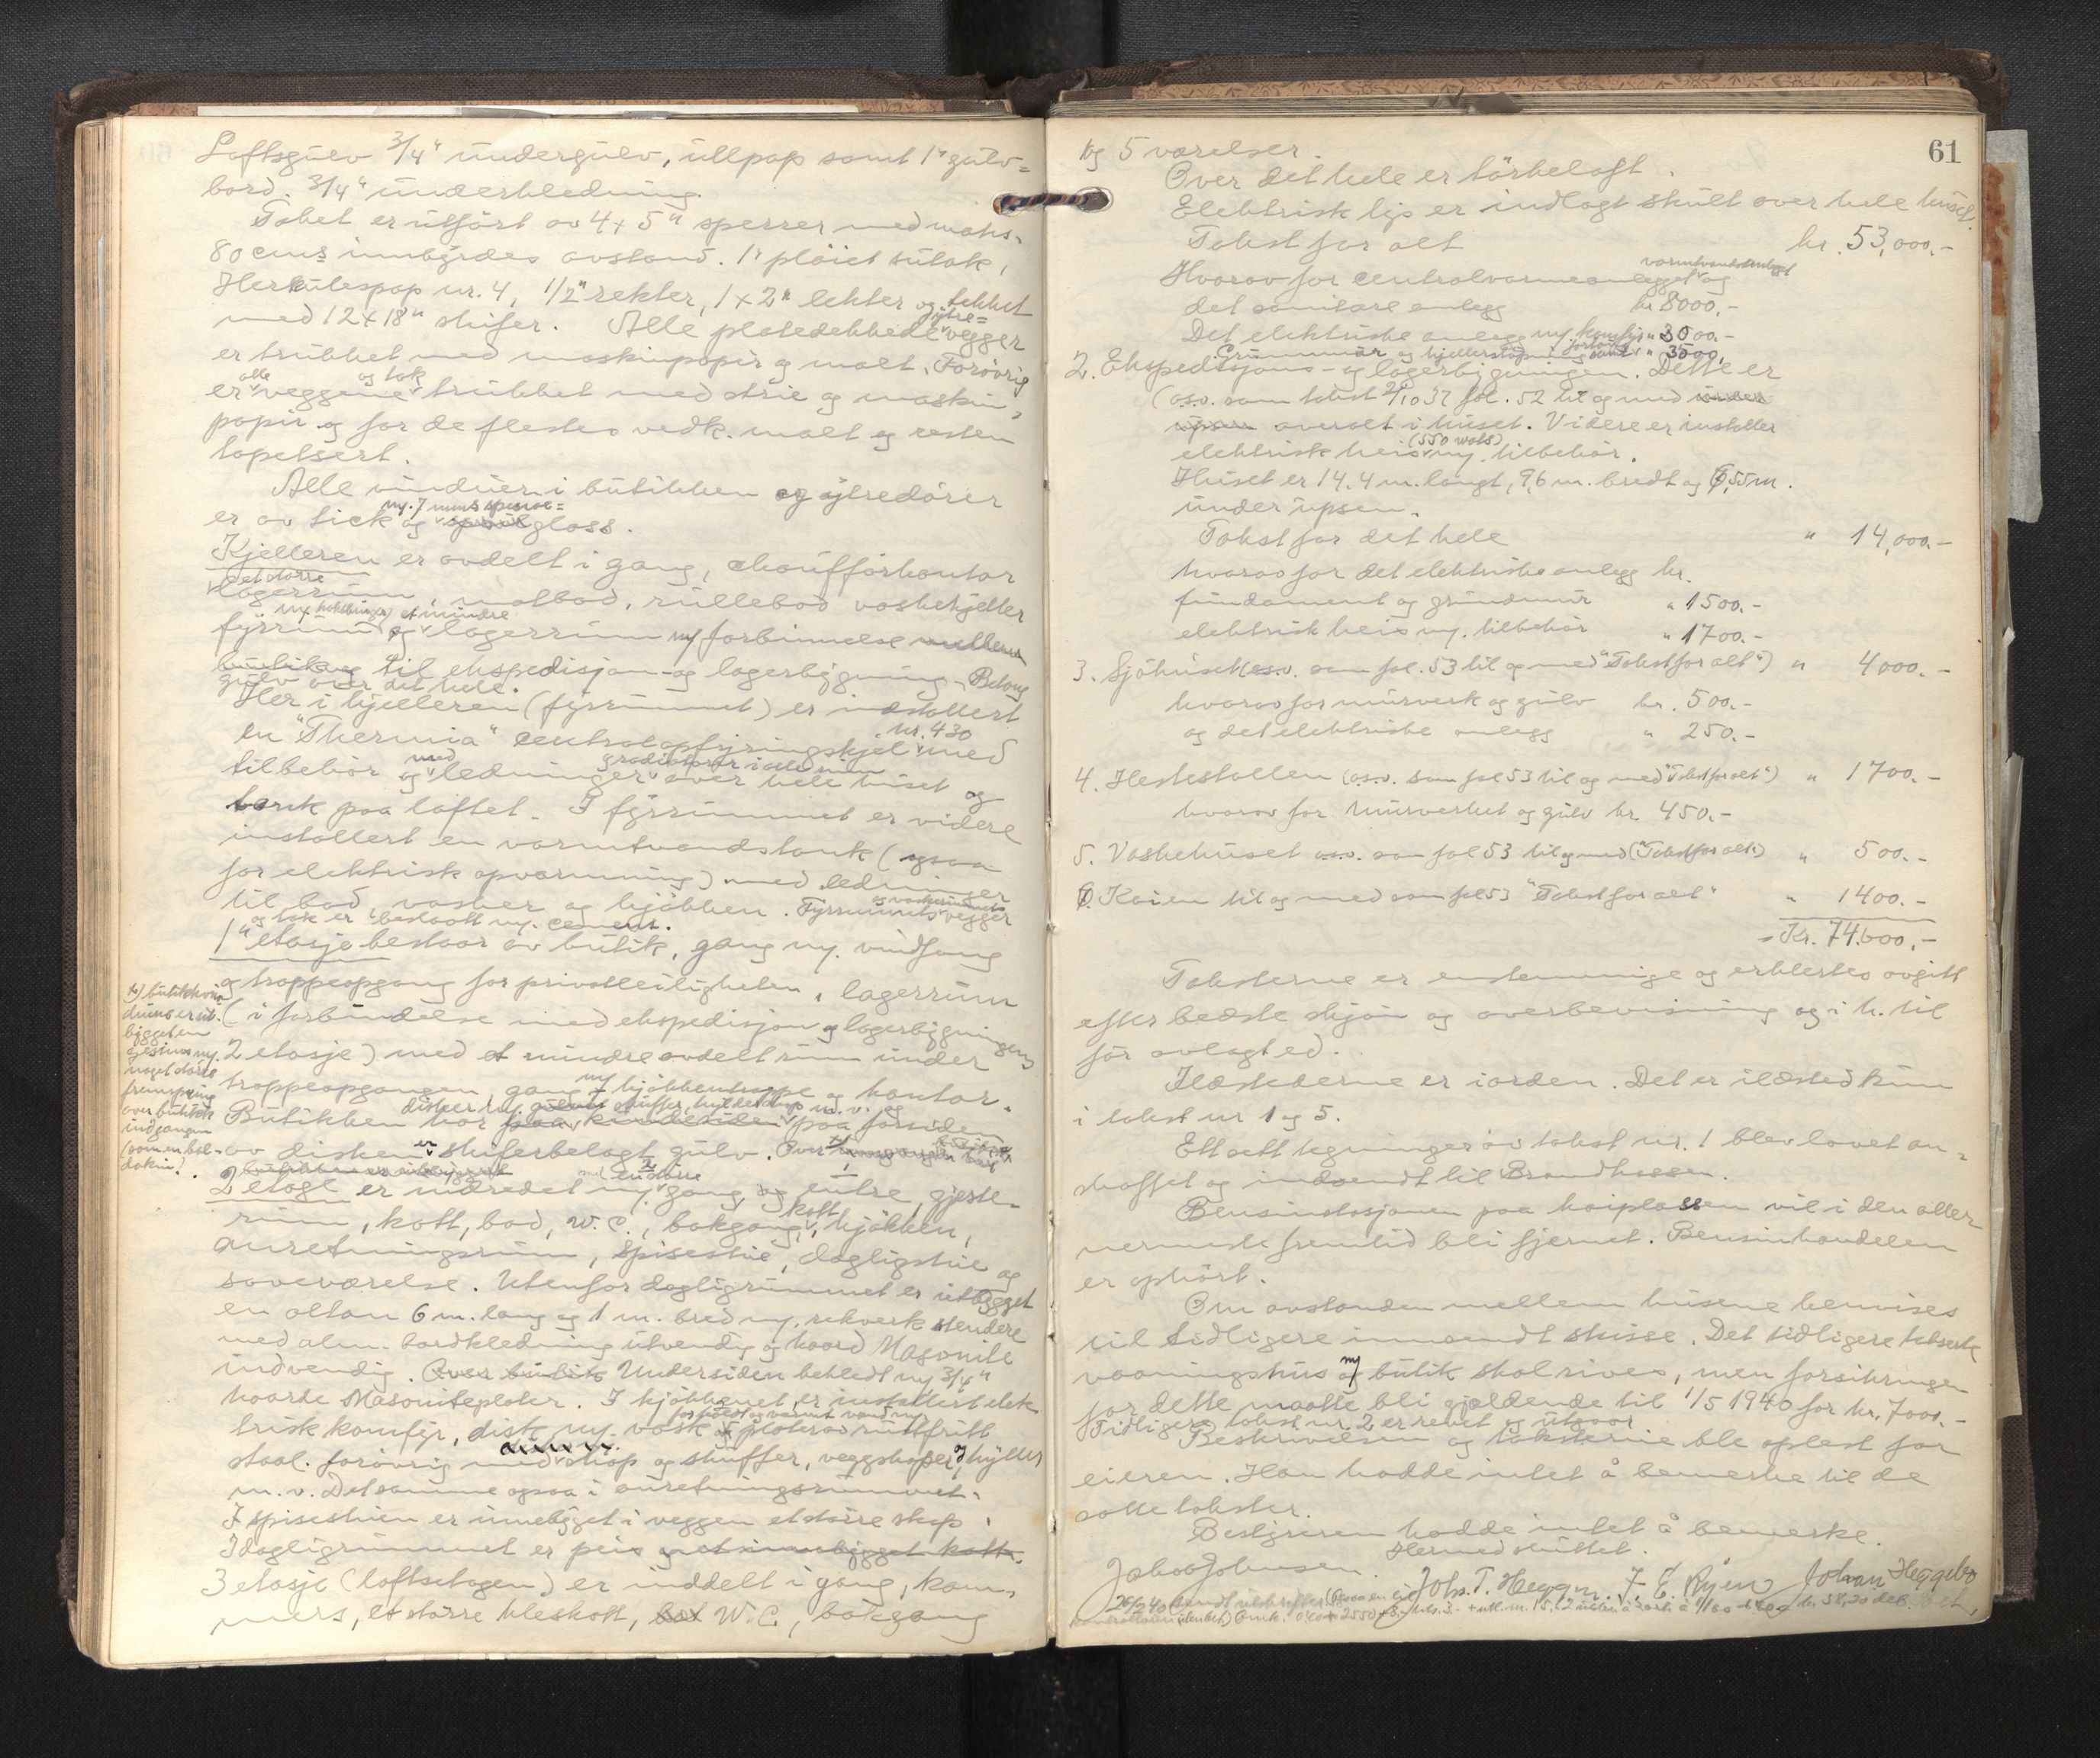 Loftsgulv 3/4" undergulv, ullpap samt 1" gulv=
bord. 3/4" underkledning.
Taket er utført av 4 x 5" sperrer med maks.
80 cms innbyrdes avstand. 1" pløiet sutak,
Herkulespap nr. 4, 1/2" rekter, 1 x 2" lekter og tekket
med 12 x 18" skifer. Alle platedekkede ytre=vegger
er trukket med maskinpapir og malt. Forøvrig
er alle veggene og tak trukket med strie og maskin=
papir og for de flestes vedk. malt og resten
tapetsert.
Alle vinduer i butikken og ytredører
er av tick og m/ 7 mms speil=glass.
Kjelleren er avdelt i gang, chaufførkontor
det større
lagerrum, matbod, rullebod vaskekjeller
fyrrum m/ koksbinge) og et mindre lagerrum m/ forbinnelse mellem
butik og til ekspedisjon- og lagerbygning. Betong
gulv over det hele.
Her i kjelleren (fyrrummet) er installert
en "Thermia" centralopfyringskjel nr. 430 med
tilbehør og med ledninger radiatorer i alle rum over hele huset og
tank paa loftet. I fyrrummet er videre
installert en varmtvandstank (ogsaa
for elektrisk opvarmning) med ledninger
til bad, vasker og kjøkken. Fyrrummets vegger
og tak er beslaatt m/ cement.
1" etasje bestaar av butik, gang m/ vindfang
og trappeopgang for privatleiligheten, lagerrum
(i forbindelse med ekspedisjon og lagerbygningens
2 etasje) med et mindre avdelt rum under
trappeopgangen gang m/ kjøkkentrappe og kontor.
Butikken har disker m/ skuffer, hylder m.v. og paa forsiden
av disken er skiferbelagt gulv. Over
x) butikkvin
duene er ut-
bygget en
m/
noget større
fremspring
over butikk
indgangen
(som en bal-
dakin).
2 etage er indredet m/ en større gang, entre, gjeste-
rum, kott, bad, W.C., bakgang, kott, kjøkken,
anretningsrum, spisestue, dagligstue og
soveværelse. Utenfor dagligrummet er utbygget
en altan 6 m. lang og 1 m. bred m/ rekverk stendere
med alm. bordkledning utvendig og haard Masonite
indvendig. Over butik Undersiden bekledt m/ 3/4"
haarde Masoniteplater. I kjøkkenet er installert elek
trisk komfyr, disk m/ vask og plater av rustfritt
staal. forøvrig med skap og skuffer, veggskaper og hyller
m. v. Det samme ogsaa i anretningsrummet.
I spisestuen er innebygget i veggen et større skap.
I dagligrummet er peis og et innebygget kott.
3 etasje (loftsetagen) er inddelt i gang, kam=
mers, et større kleskott, bad W.C., bakgang
61
og 5 værelser.
Over det hele er tørkeloft.
Elektrisk lys er indlagt skult over hele huset.
Takst for alt kr. 53,000.-
varmtvandsanlegg
Hvorav for centralvarmeanlegget og
det sanitære anlegg kr 8000.-
Det elektriske anlegg m/ komfyr " 3000.-
Grunnmur og kjellerstøpning " 3500.
2. Ekspedisjons- og lagerbygningen. Dette er
(o.s.v. som takst 2/10 37 fol. 52 til og med under
upsen overalt i huset. Videre er installer
elektrisk heis (550 wats) m/ tilbehør.
Huset er 14.4 m. langt, 9,6 m. bredt og 6,55 m.
under upsen.
Takst for det hele " 14,000.-
hvorav for det elektriske anlegg kr.
fundament og grundmur " 1500.-
elektrisk heis m/ tilbehør " 1700.-
3. Sjøhuset (o.s.v. som fol. 53 til og med "Takst for alt") " 4000.-
hvorav for murverk og gulv kr. 500.-
og det elektriske anlegg " 250.-
4. Hestestallen (o.s.v. som fol 53 til og med "Takst for alt") " 1700.-
hvorav for murverket og gulv kr. 450.-
5. Vaskehuset o.s.v. som fol 53 til og med ("Takst for alt") " 500.-
6. Kaien til og med som fol 53 "Takst for alt" " 1400.-
Kr. 74.600.-
Taksterne er enstemmige og erklertes avgitt
efter bedste skjøn og overbevisning og i h. til
før avlagt ed.
Ildstederne er i orden. Det er ildsted kun
i takst nr 1 og 5.
Ett sett tegninger av takst nr. 1 blev lovet an=
skaffet og indsendt til Brandkassen.
Bensinstasjonen paa kaiplassen vil i den aller
nermeste fremtid bli fjernet. Bensinhandelen
er ophørt.
Om avstanden mellem husene henvises
til tidligere innsendt skisse. Det tidligere takserte
vaaningshus m/ butik skal rives, men forsikringen
for dette maatte bli gjeldende til 1/5 1940 for kr. 7000.-
Tidligere takst nr. 2 er revet og utgaar
Beskrivelsen og taksterne ble oplest for
eieren. Han hadde intet å bemerke til de
satte takster.
Bestyreren hadde intet å bemerke.
Hermed sluttet.
Jakob Johnsen. Johs. T. Heggn. J. E. Ryen Johan Heggebo